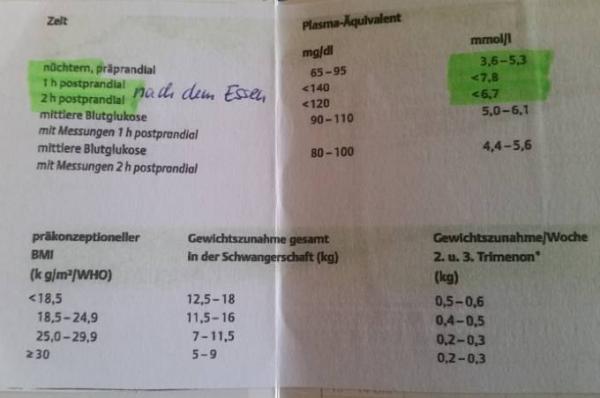 Zeit Plasma-Äquivalent
mg/dl mmol/l
nüchtern, präprandial 65–95 3,6–5,3
1 h postprandial <140 <7,8
2 h postprandial nach dem Essen <120 <6,7
mittlere Blutglukose 90–110 5,0–6,1
mit Messungen 1 h postprandial
mittlere Blutglukose 80–100 4,4–5,6
mit Messungen 2 h postprandial
präkonzeptioneller Gewichtszunahme gesamt Gewichtszunahme/Woche
BMI in der Schwangerschaft (kg) 2. u. 3. Trimenon*
(k g/m²/WHO) (kg)
<18,5 12,5–18 0,5–0,6
18,5–24,9 11,5–16 0,4–0,5
25,0–29,9 7–11,5 0,2–0,3
≥30 5–9 0,2–0,3